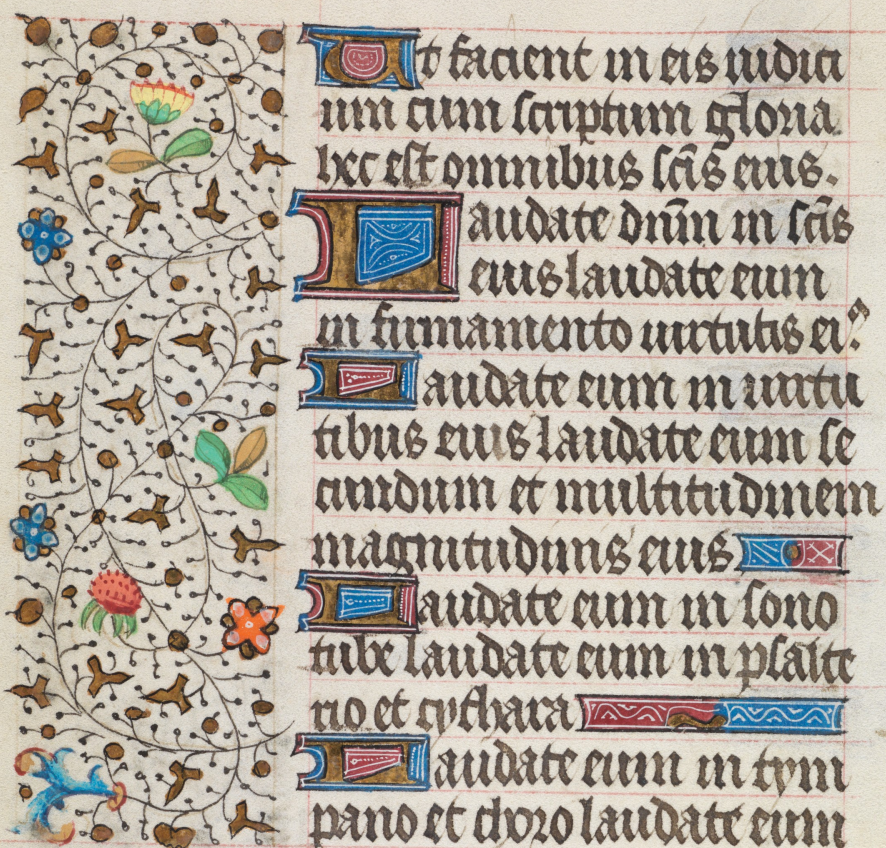 Ut facient in eis iudici
um cum scriptum gloria
hec est omnibus sc̄is eius.
Laudate dn̄m in sc̄is
eius laudate eum
in firmamento uirtutis ei⁹.
Laudate eum in uirtu
tibus eius laudate eum se
cundum et multitudinem
magnitudinis eius
Laudate eum in sono
tube laudate eum in psalte
rio et cythara
Laudate eum in tym
pano et choro laudate eum